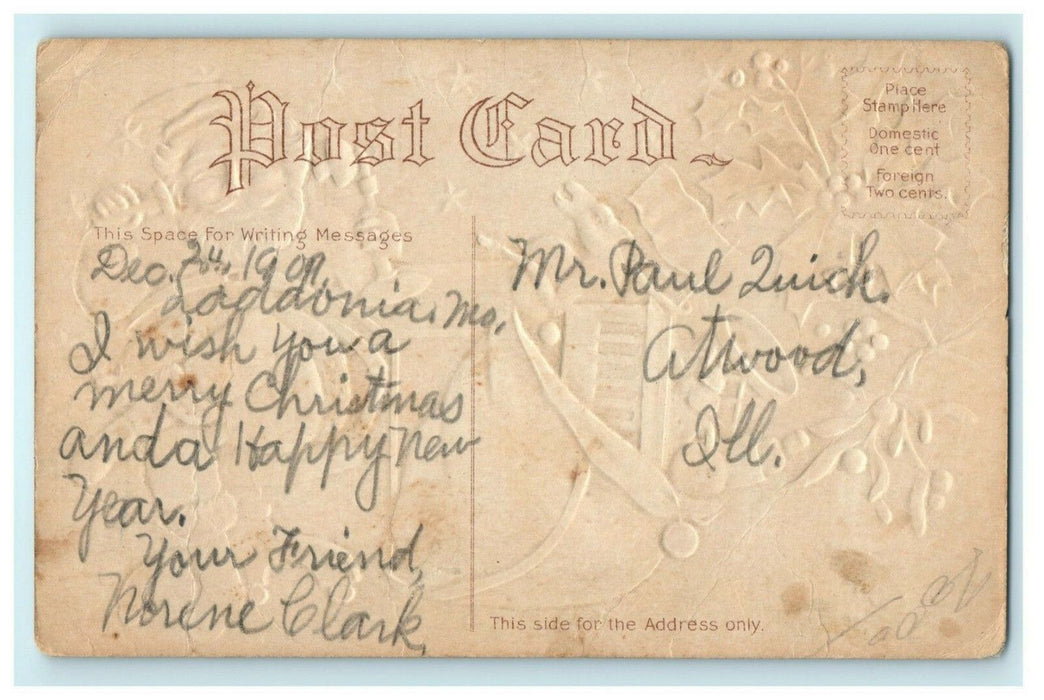 Post Card
Place
Stamp Here
Domestic
One cent
Foreign
Two cents.
This Space For Writing Messages
Dec. 24, 1909,
Laddonia, Mo,
I wish you a
merry Christmas
and a Happy New
Year.
Your Friend,
Norene Clark,
Mr. Paul Quick.
Atwood,
Ill.
This side for the Address only.